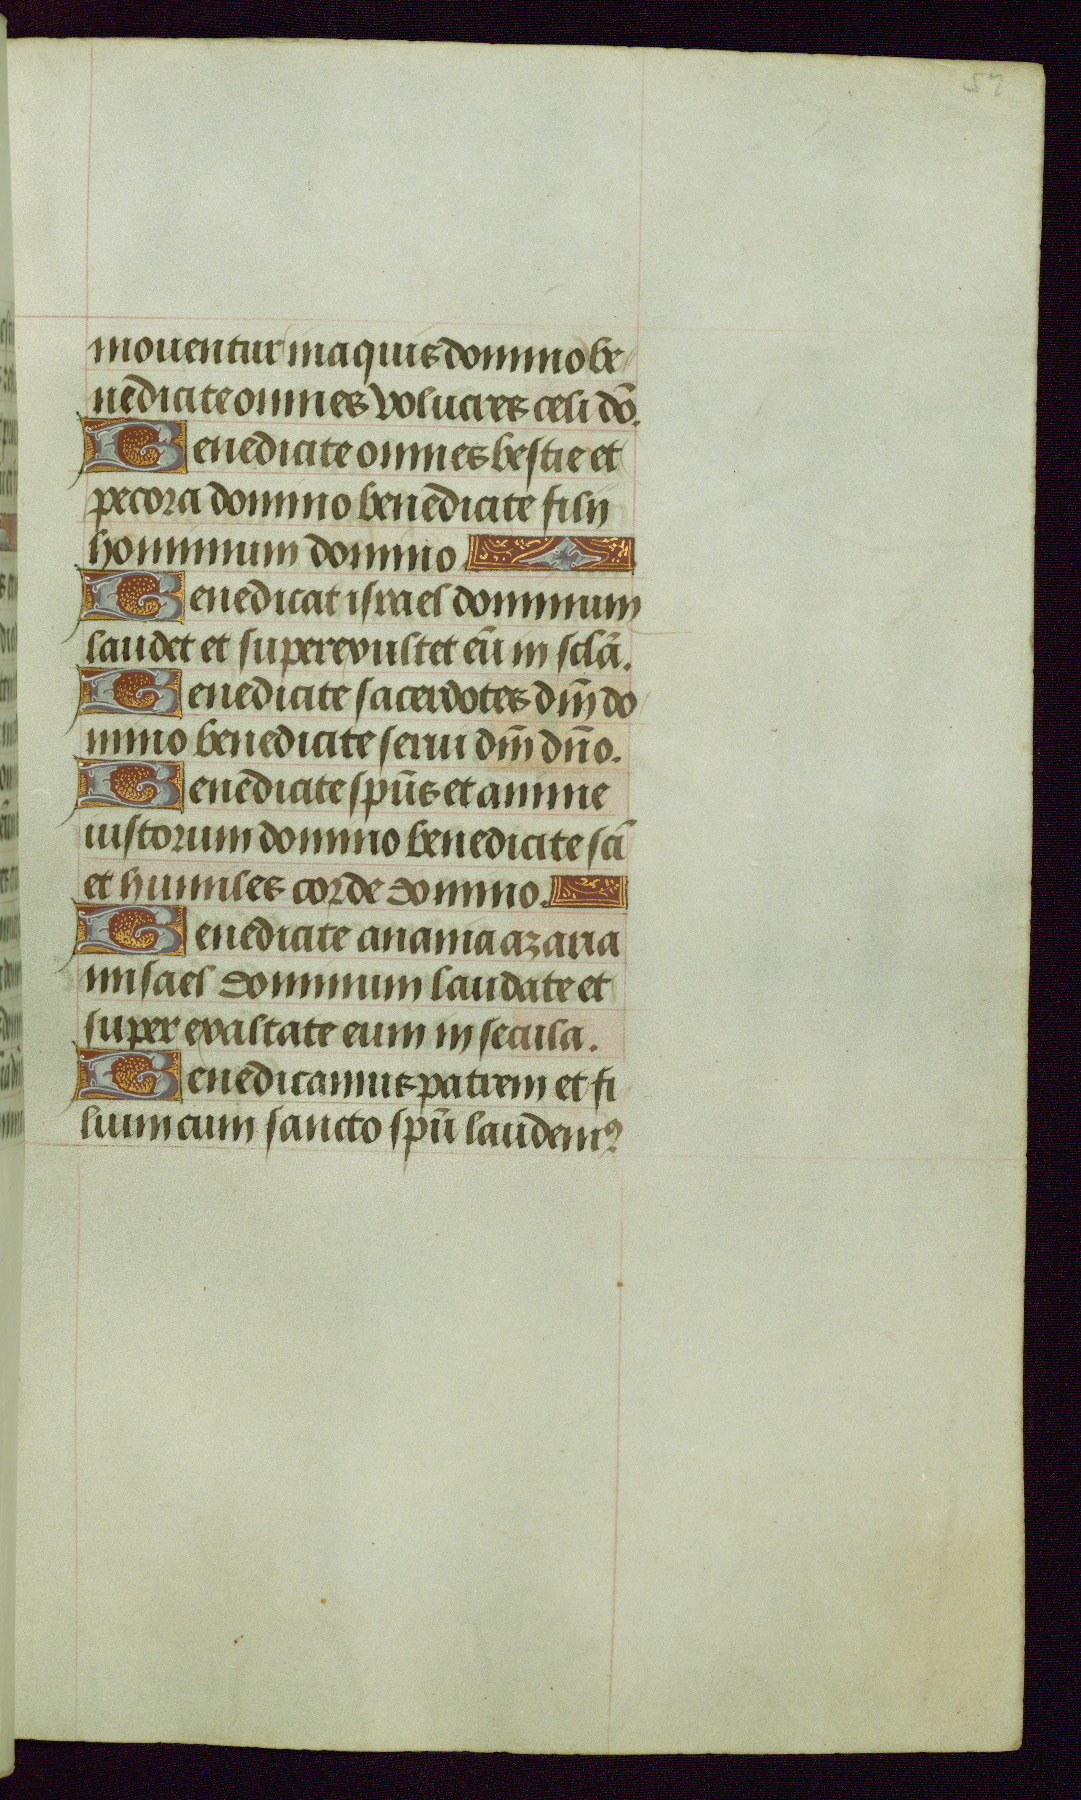 57
mouentur in aquis domino be
nedicite omnes volucres celi dō.
Benedicite omnes bestie et
pecora domino benedicite filij
hominum domino
Benedicat israel dominum
laudet et superexultet eū in sclā.
Benedicite sacerdotes dñi do
mino benedicite serui dñi dño.
Benedicite spūs et anime
iustorum domino benedicite sci̅
et humiles corde domino.
Benedicite anania azaria
misael dominum laudate et
super exaltate eum in secula.
Benedicamus patrem et fi
lium cum sancto spū laudemꝰ